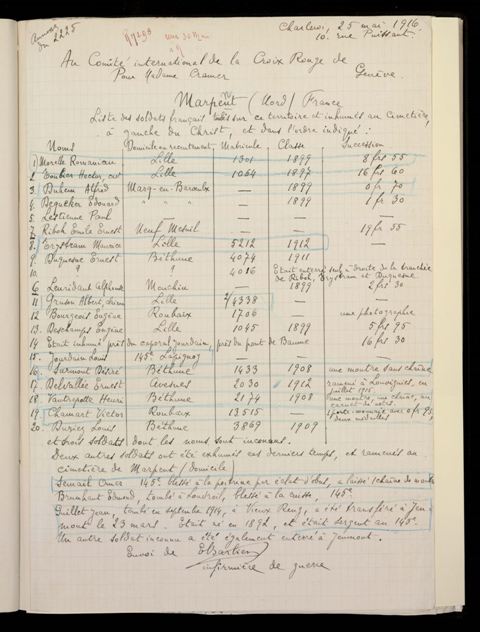 Charleroi, 25 mai 1916
10. rue Puissant.
Au Comité international de la Croix Rouge de
Genève.
Pour Madame Cramer
Marpent (Nord) France
Liste des soldats français sur ce territoire et inhumés au Cimetière,
à gauche du Christ, et dans l'ordre indiqué :
Noms Domicile ou recrutement Matricule Classe Succession
1) Morelle Lille 1301 1899 8 frs 55
2 Hector Lille 1064 1897 16 frs 60
3. Duhem Alfred Marq-en-Baroeulx — 1899 0 fr 70
4. Dequeker Edouard " " " — 1899 1 fr 30
5. Lestienne Paul — — —
7. Riboh Emile Ernest Neuf Mesnil — 17 fr 55
8. Erzstram Maurice Lille 5212 1912 —
9. Duquesne Ernest Béthune 4074 1911
10. ? ? 4016 Etait enterré seul à droite de la tranchée
de Riboh, Erzstram et Duquesne
6. Leuridant Alphonse Mouchin — 1899 2 frs 30
11. Gruson Albert, Lille 4338 — —
12. Bourgeois Eugène Roubaix 1706 — une photographie
13. Deschamps Eugène Lille 1045 1899 5 frs 75
14. Etait inhumé près du caporal Jourdain, près du pont de Baume 16 frs 30
15. Jourdain Louis 145e —
16. Sarmont Désiré Béthune 1433 1908 une montre sans chaîne
17. Delvallée Ernest Avesnes 2030 1912 ramené à Louvignies, en
juillet 1915.
18. Vantrepotte Henri Béthune 2174 1908 une montre, une chaîne, un
19. Chamart Victor Roubaix 13515 — 1 porte-monnaie avec 0 fr 95,
deux médailles
20. Buriez Louis Béthune 3869 1909
et trois soldats dont les noms sont inconnus.
Deux autres soldats ont été exhumés ces derniers temps, et ramenés au
cimetière de Marpent (domicile)
Semail Omer 145e blessé à la poitrine par éclat d'obus, a laissé 1 chaîne de montre
Brunhant Edmond, tombé à Landroit, blessé à la cuisse, 145e.
Guillet Jean, tombé en septembre 1914, à Vieux Reng, a été transféré à Jeu-
mont le 23 mars. Etait né en 1892, et était sergent au 145e.
Un autre soldat inconnu a été également enterré à Jeumont.
Envoi de
infirmière de guerre